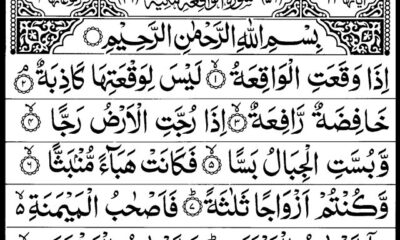 بِسْمِ اللّٰهِ الرَّحْمٰنِ الرَّحِیْمِ
اِذَا وَقَعَتِ الْوَاقِعَةُ ۝۱ لَیْسَ لِوَقْعَتِهَا كَاذِبَةٌ ۝۲
خَافِضَةٌ رَّافِعَةٌ ۝۳ اِذَا رُجَّتِ الْاَرْضُ رَجًّا ۝۴
وَّبُسَّتِ الْجِبَالُ بَسًّا ۝۵ فَكَانَتْ هَبَآءً مُّنْۢبَثًّا ۝۶
وَّكُنْتُمْ اَزْوَاجًا ثَلٰثَةً ۝۷ فَاَصْحٰبُ الْمَیْمَنَةِ ۵